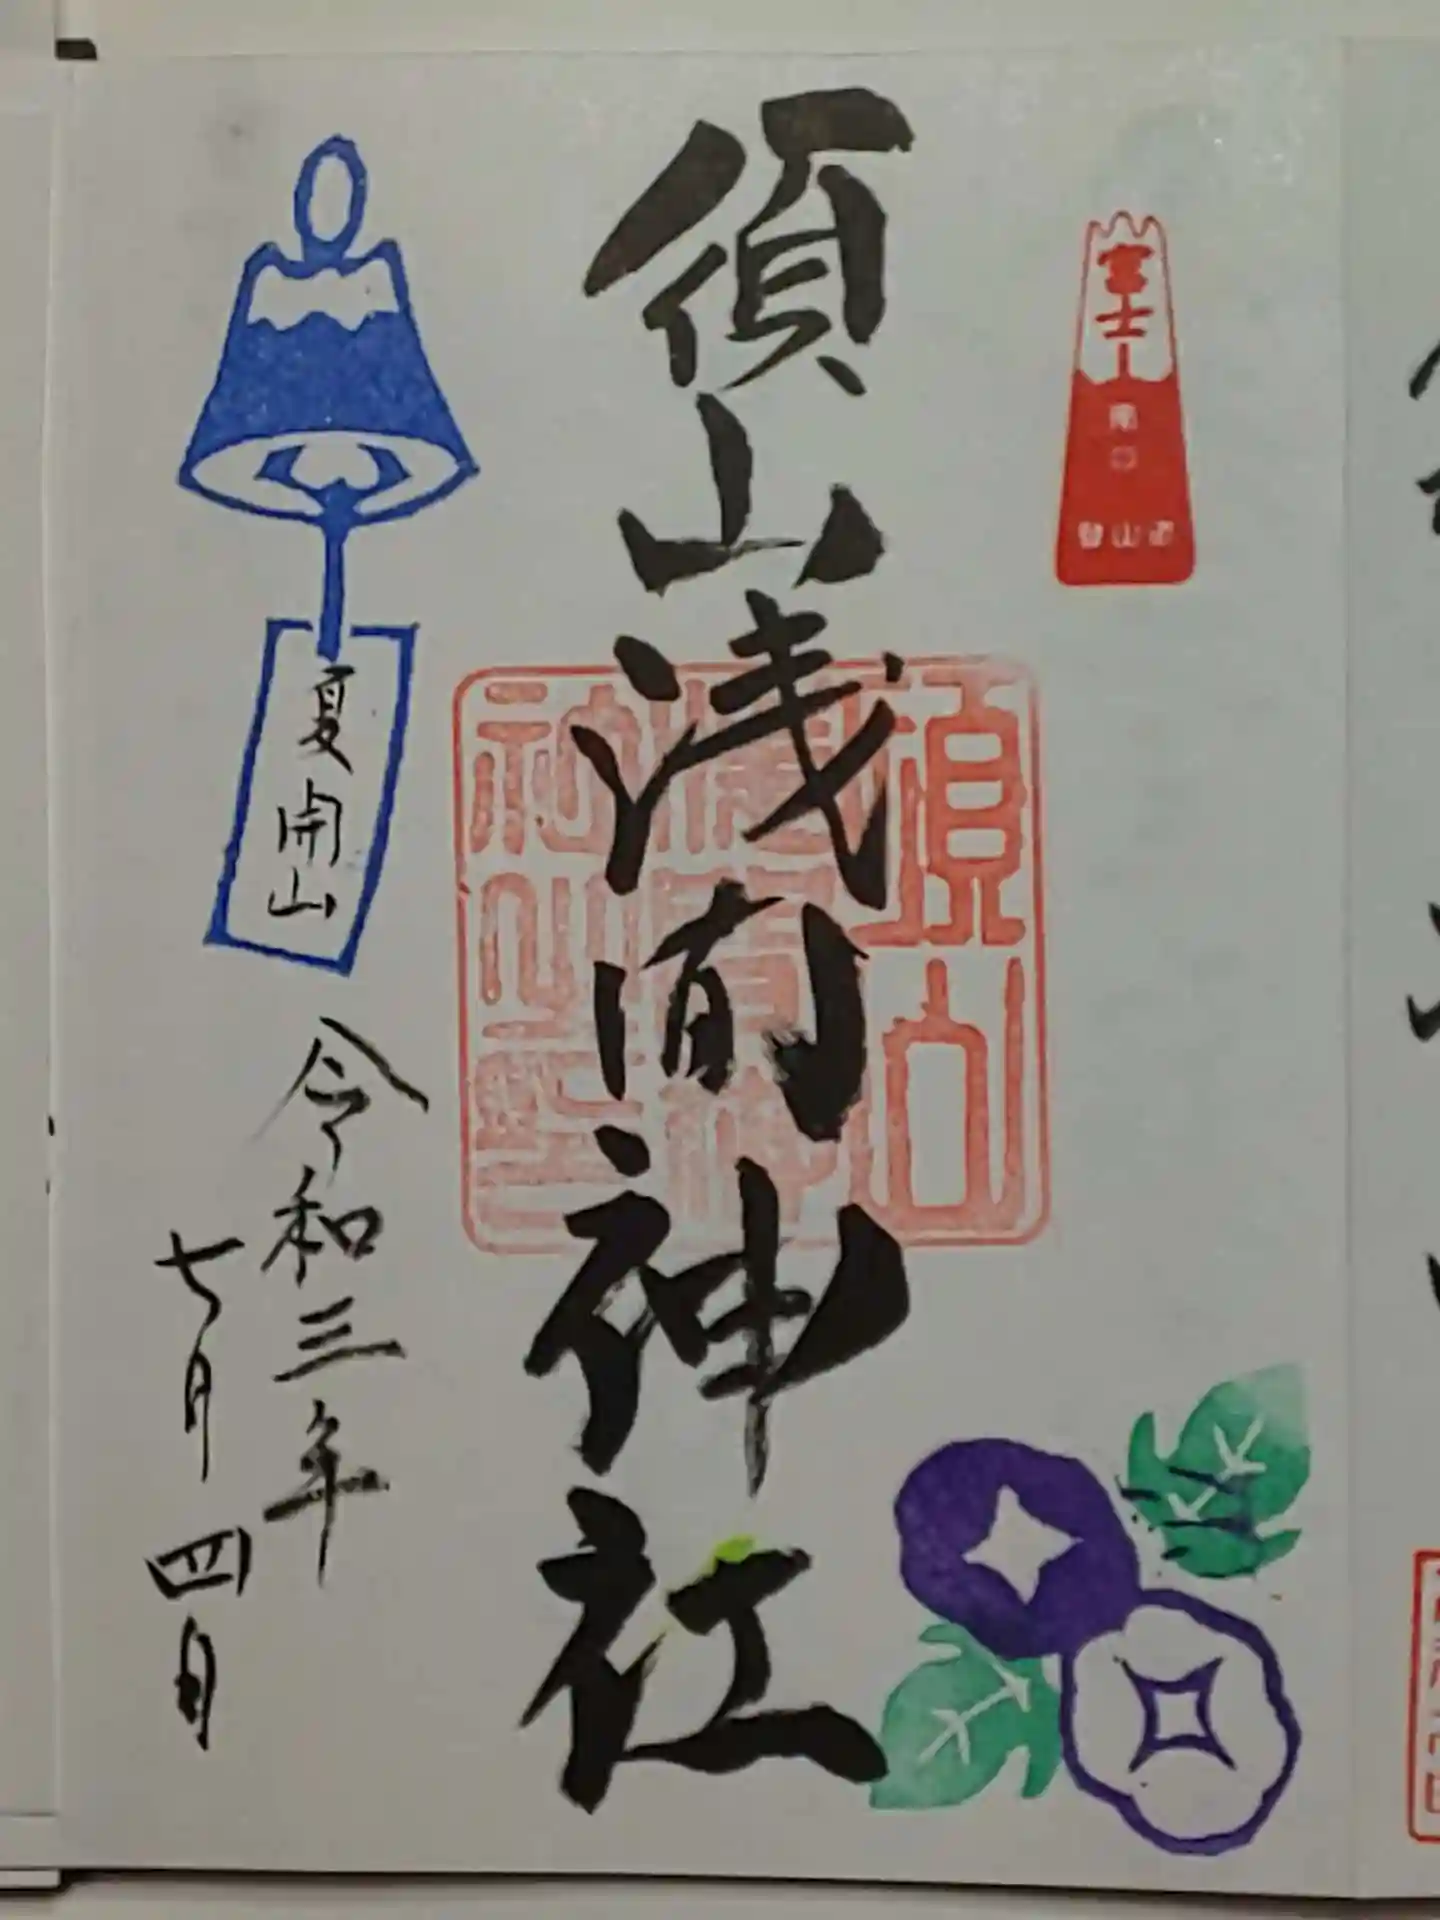 富士山
南口
登山道
須山浅間神社
須山
夏開山
令和三年
七月四日